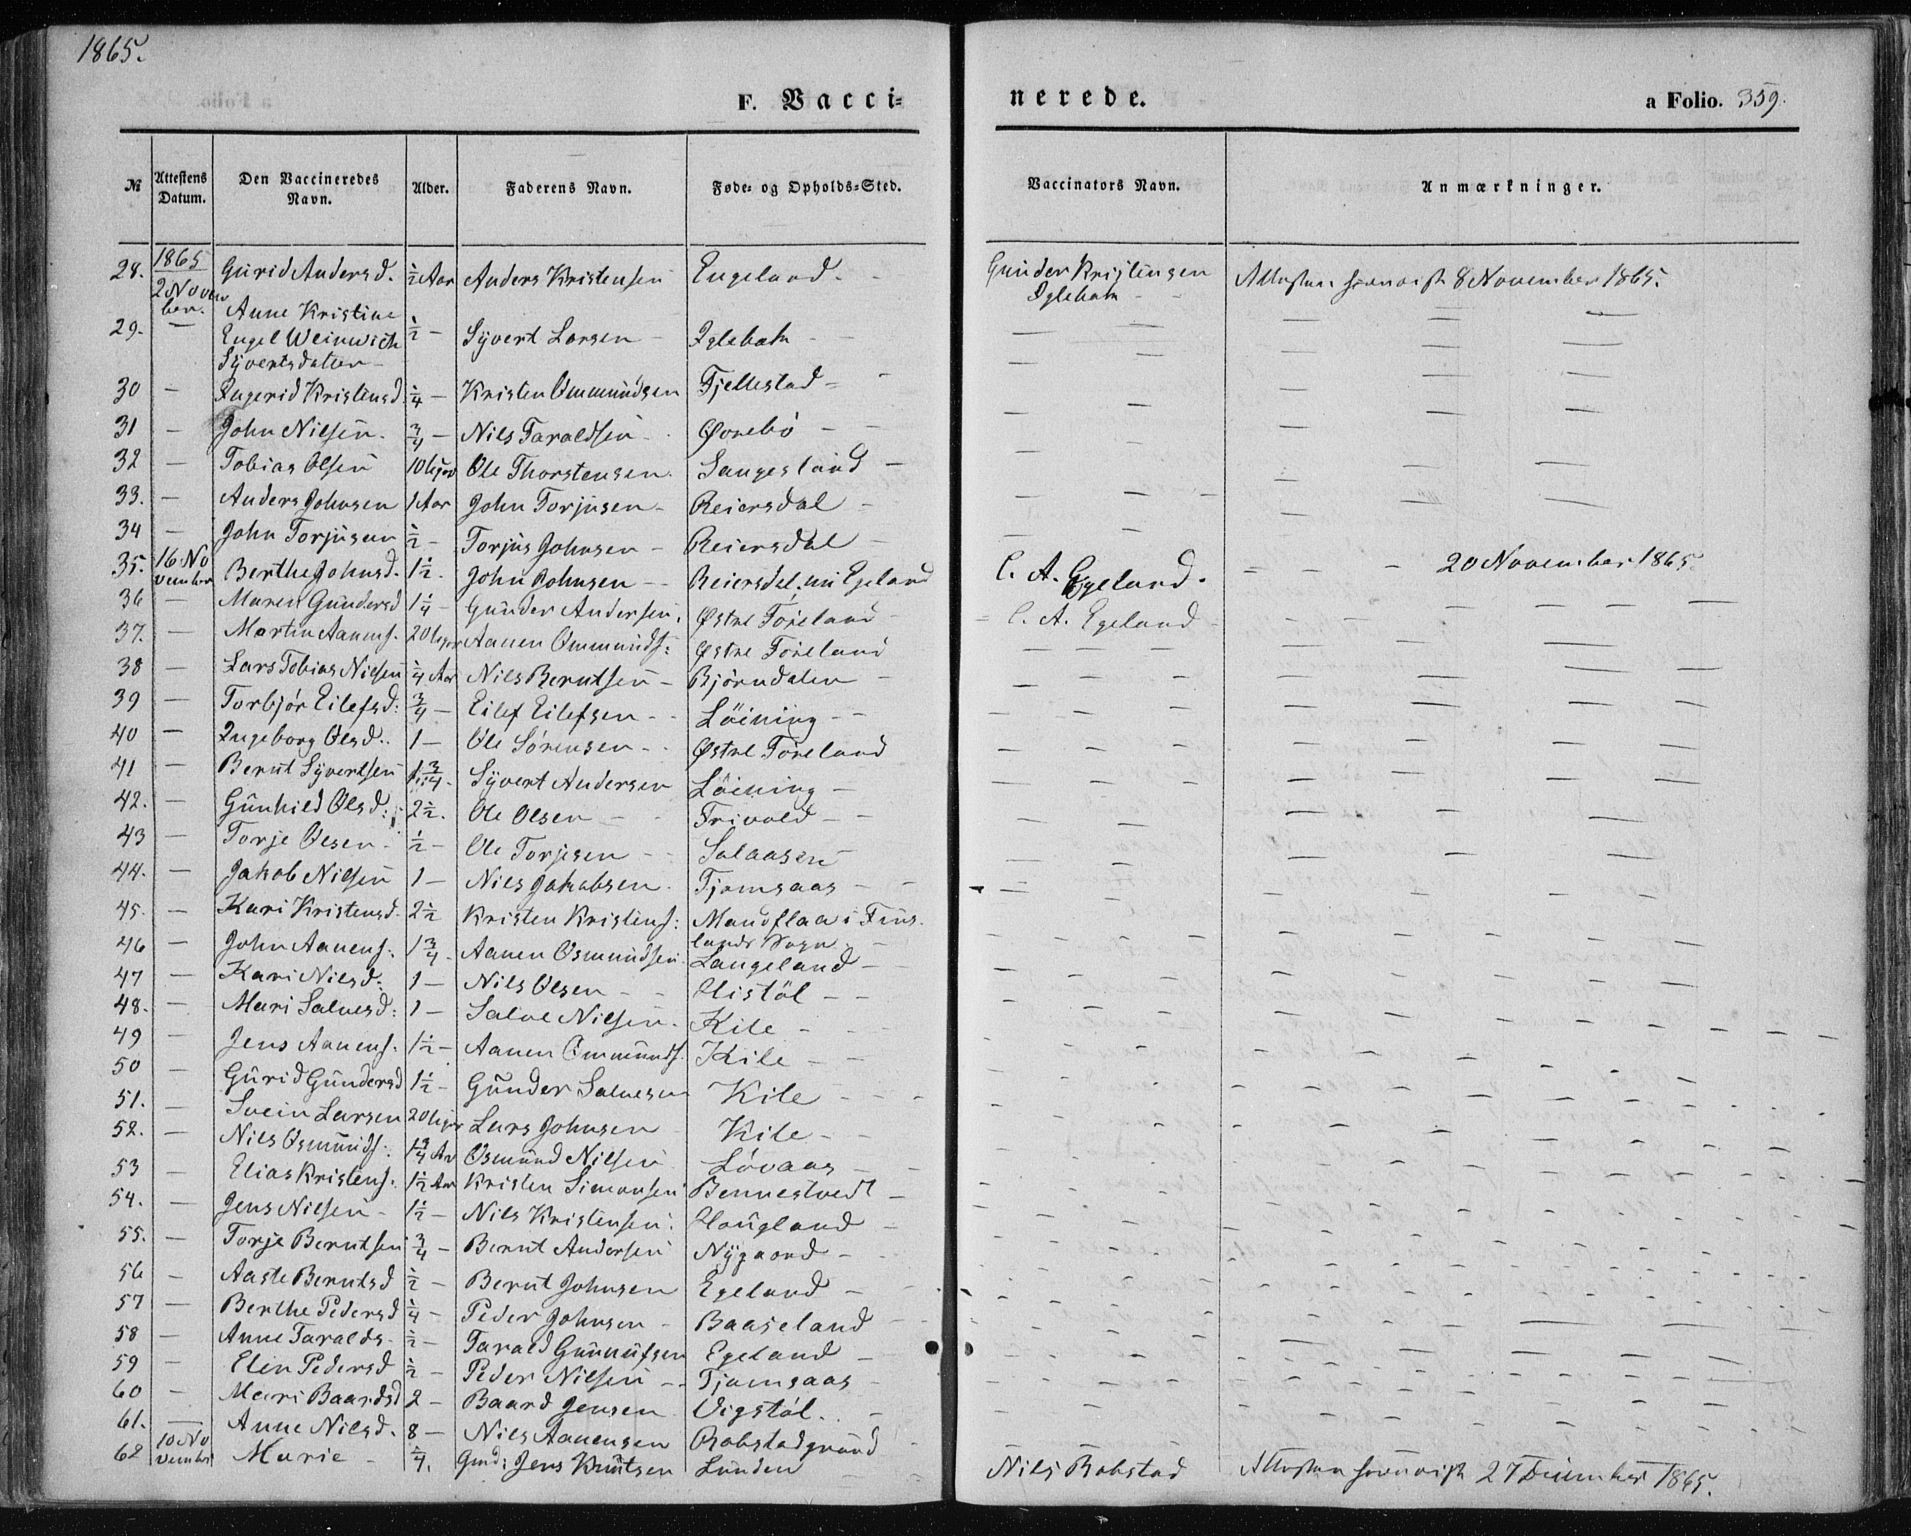 1865.
F. Vacci=
nerede.
a Folio. 359.
№ Attestens Datum. Den Vaccineredes Navn. Alder. Faderens Navn. Føde- og Opholds-Sted. Vaccinators Navn. Anmærkninger.
28. 1865 2 November. Gurid Andersd. ½ Aar Anders Kristensen Engeland. - Gunder Kristensen Iglebæk - - Attesten foreviist 8 November 1865.
29. — Anne Kristine
Engel Weinwich ½ — Syvert Larsen — Iglebæk - -
Syvertsdatter —
30 — Ingerid Kristensd. ¼ — Kristen Ommundsen Fjellestad - -
31 — John Nilsen. ¾ — Nils Taraldsen - Øvrebø - -
32 — Tobias Olsen 10 Uger Ole Thorstensen. Sangesland -
33. — Anders Johnsen 1 Aar John Torjusen - Reiersdal -
34 — John Torjusen ½ — Torjus Johnsen - Reiersdal -
35. 16 November Berthe Johnsd. 1½. John Johnsen - - Reiersdal, nu Egeland C. A. Egeland. - - - 20 November 1865.
36 — Maren Gundersd 1¼ — Gunder Andersen. Østre Føreland - - C. A. Egeland -
37. — Martin Aanens. 20 Uger Aanen Ommunds: Østre Føreland
38 — Lars Tobias Nilsen ¼ Aar Nils Berntsen - Bjørndalen -
39 — Torbjør Eilefsd: ¾ — Eilef Eilefsen - - Løining - -
40 — Ingeborg Olsd.. 1 — Ole Sørensen - - Østre Føreland
41 — Bernt Syvertsen 1¾. Syvert Andersen Løining -
42. — Gunhild Olsd: 2½. Ole Olsen - - Frivold - -
43 — Torje Olsen - ½ — Ole Torjesen - - Salaasen
44. — Jakob Nilsen 1 — Nils Jakobsen. Tjomsaas - -
45. — Kari Kristensd. 2½ Kristen Kristens: Mandflaa i Fins-
lands Sogn. -
46 — John Aanens. 1¾. Aanen Osmundsen. Langeland -
47 — Kari Nilsd: 1 — Nils Olsen - - Histøl - -
48. — Mari Salvesd: 1 — Salve Nilsen. Kile - - -
49 — Jens Aanens. 1½ — Aanen Ommunds. Kile - -
50 — Gurid Gundersd 1½ - Gunder Salvesen Kile - - -
51. — Svein Larsen 20 Uger Lars Johnsen - Kile - -
52. — Nils Osmunds: 1¾ Aar Osmund Nilsen Løvaas - -
53 — Elias Kristens. 1½ Aar Kristen Simonsen Bennestvedt -
54. — Jens Nilsen - 1½ — Nils Kristensen. Haugland -
55. — Torje Berntsen ¾ — Bernt Andersen Nygaard -
56 — Aaste Berntsd ½ — Bernt Johnsen Egeland -
57 — Berthe Pedersd ¼ — Peder Johnsen - Baaseland - -
58 — Anne Taralds. ½ — Tarald Gunnufsen Egeland -
59 — Elin Pedersd ½ — Peder Nilsen - - Tjomsaas -
60 — Mari Baardsd 2 — Baard Jensen Vigstøl. -
61. — Anne Nilsd. 8 — Nils Aanensen Robstadgrund -
62 10 November Marie - ¼. Gmd: Jens Knutsen Lunden - Nils Robstad Attesten foreviist 27 December 1865.